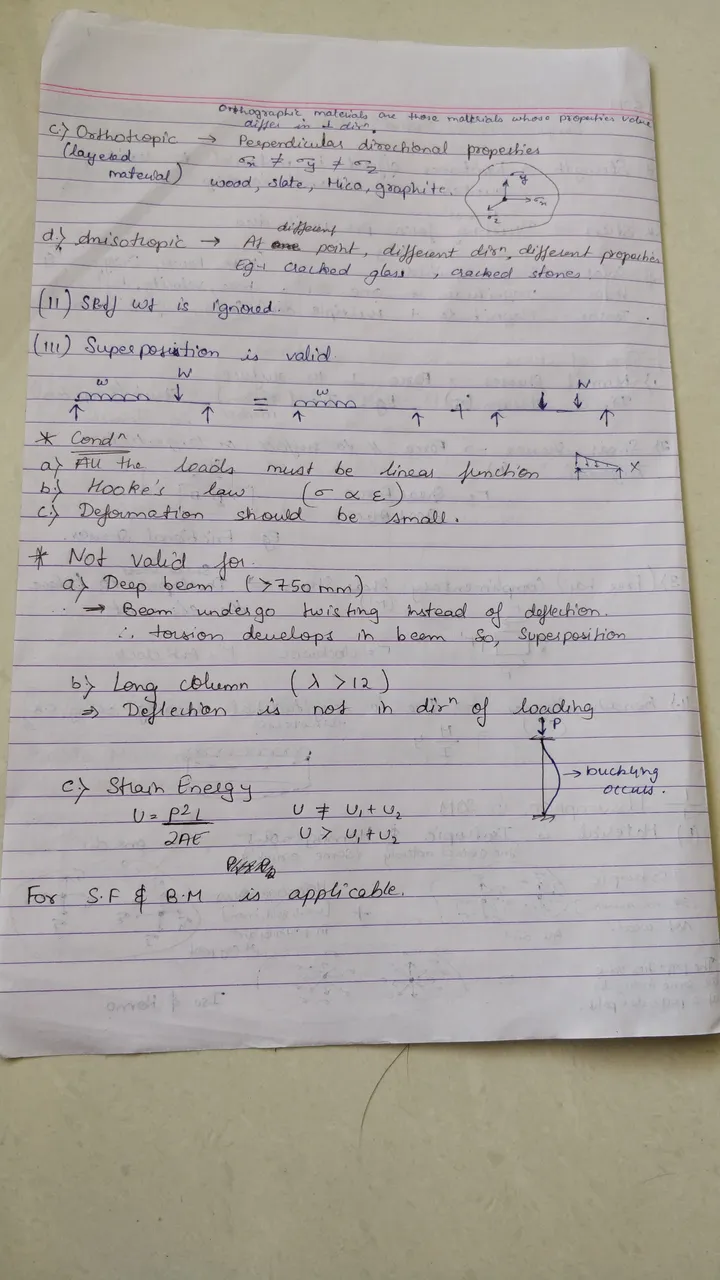 Orthographic materials are those materials whose properties value
differ in ⊥ dirⁿ.
c.) Orthotropic → Perpendicular directional properties
(layered material)
σx ≠ σy ≠ σz
wood, slate, Mica, graphite.
σy
σx
σz
d.) Anisotropic → At different point, different dirⁿ, different properties
Eg→ cracked glass, cracked stones
(II) Self wt is ignored.
(III) Superposition is valid.
w W ≡ w + W
* Condⁿ
a.) All the loads must be linear function x
b.) Hooke's law (σ ∝ ε)
c.) Deformation should be small.
* Not valid for.
a.) Deep beam (>750 mm)
→ Beam undergo twisting instead of deflection.
∴ torsion develops in beam So, Superposition
b.) Long column (λ >12)
⇒ Deflection is not in dirⁿ of loading
P
→ buckling
occurs.
c.) Strain Energy
U = P²L / 2AE
U ≠ U₁ + U₂
U > U₁ + U₂
For S.F & B.M is applicable.